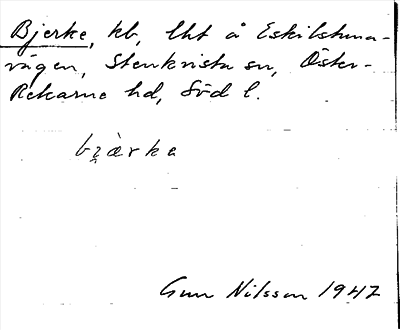 Bjerke, kb, lht å Eskilstuna-
vägen, Stenkvista sn, Öster-
Rekarne hd, Söd l.
bjàrka
Gun Nilsson 1947